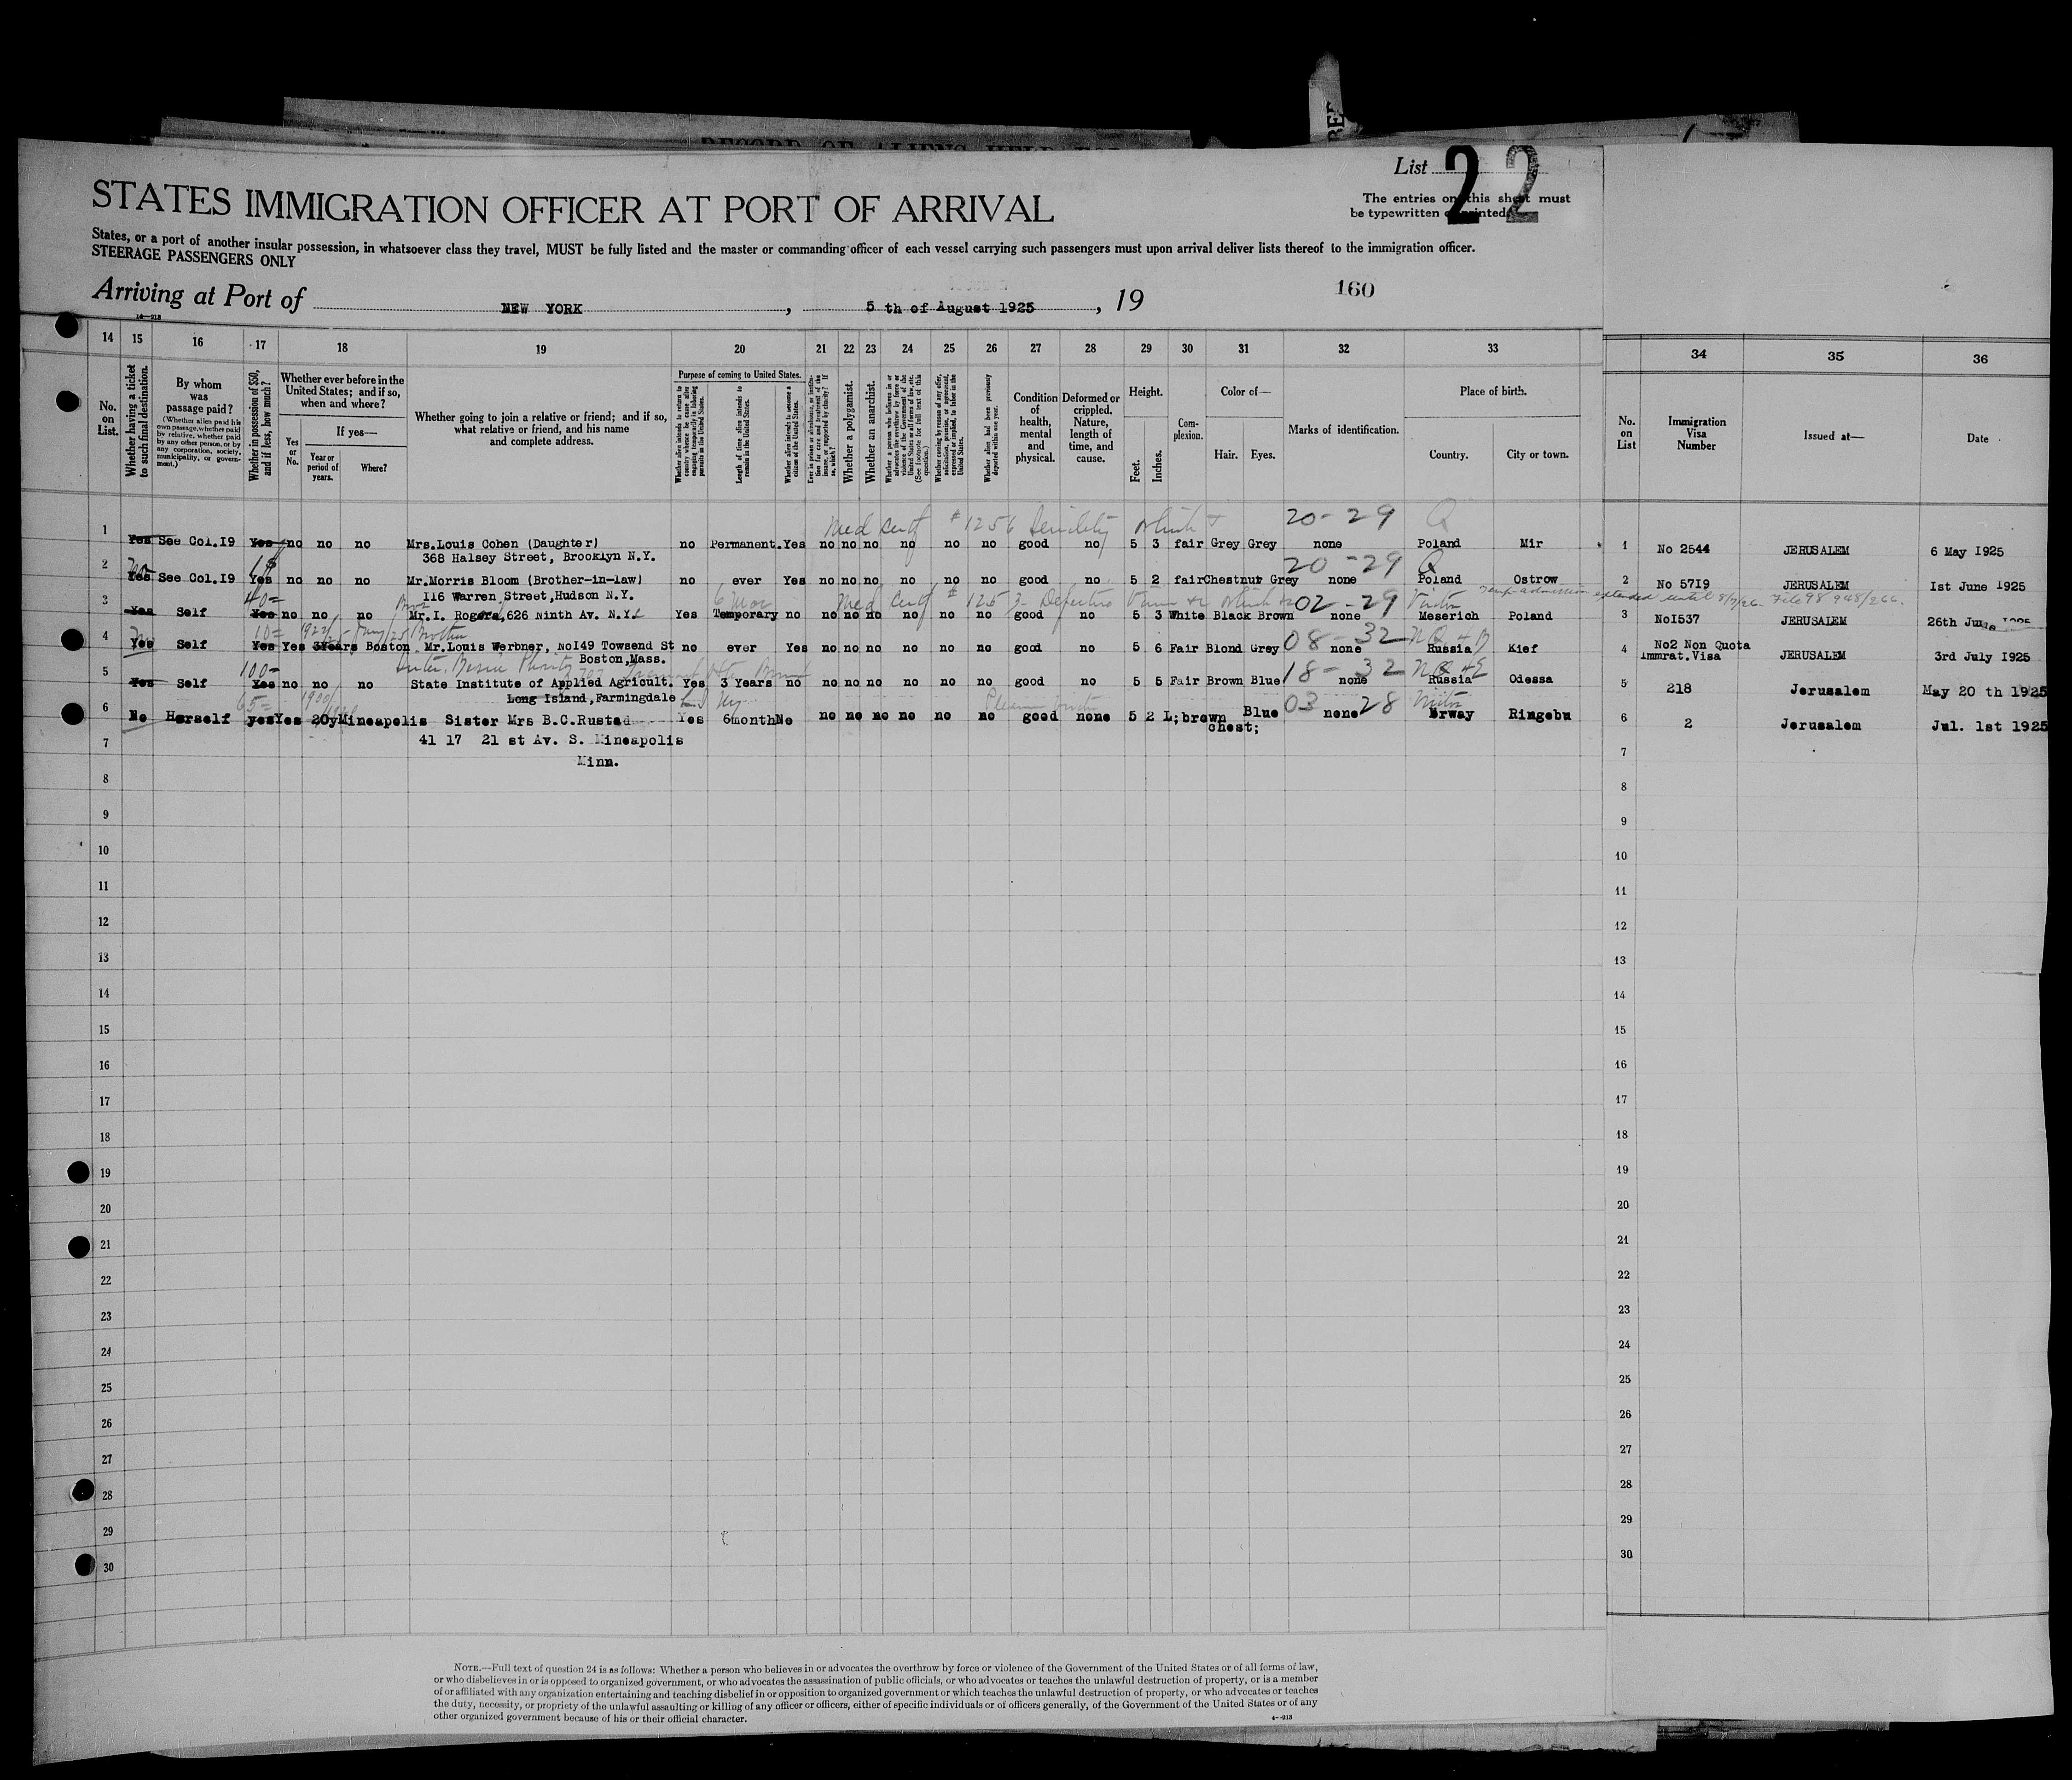 RECORD OF ALIENS HELD FOR
List 2 2
The entries on this sheet must
be typewritten or printed.
STATES IMMIGRATION OFFICER AT PORT OF ARRIVAL
States, or a port of another insular possession, in whatsoever class they travel, MUST be fully listed and the master or commanding officer of each vessel carrying such passengers must upon arrival deliver lists thereof to the immigration officer.
STEERAGE PASSENGERS ONLY
160
Arriving at Port of NEW YORK, 5 th of August 1925, 19
14 15 16 17 18 19 20 21 22 23 24 25 26 27 28 29 30 31 32 33 34 35 36
No. on List.
Whether having a ticket to such final destination.
By whom was passage paid?
(Whether alien paid his own passage, whether paid by relative, whether paid by any other person, or by any corporation, society, municipality, or government.)
Whether in possession of $50, and if less, how much?
Whether ever before in the United States; and if so, when and where?
Yes or No.
If yes—
Year or period of years.
Where?
Whether going to join a relative or friend; and if so, what relative or friend, and his name and complete address.
Purpose of coming to United States.
Length of time alien intends to remain in the United States.
Whether alien intends to become a citizen of the United States.
Whether a polygamist.
Whether an anarchist.
Whether alien had been previously deported within one year.
Condition of health, mental and physical.
Deformed or crippled. Nature, length of time, and cause.
Height.
Feet.
Inches.
Complexion.
Color of—
Hair.
Eyes.
Marks of identification.
Place of birth.
Country.
City or town.
No. on List
Immigration Visa Number
Issued at—
Date
Med Cert #1256 Senility which 20-29 Q
1 Yes See Col.I9 Yes no no no Mrs.Louis Cohen (Daughter) no Permanent. Yes no no no no no no good no 5 3 fair Grey Grey none Poland Mir 1 No 2544 JERUSALEM 6 May I925
368 Halsey Street, Brooklyn N.Y.
20-29 Q
2 Yes See Col.I9 Yes no no no Mr.Morris Bloom (Brother-in-law) no ever Yes no no no no no no good no 5 2 fair Chestnut Grey none Poland Ostrow 2 No 57I9 JERUSALEM Ist June I925
II6 Warren Street, Hudson N.Y.
40= 6 mos Med Cert #125 3- Defective which 02-29 temp admission extended until 8/7/26. File 98 948/266.
3 Yes Self Yes no no no Mr.I. Rogers, 626 Ninth Av. N.Y. Yes Temporary no no no no no no no good no 5 3 White Black Brown none Meserich Poland 3 NoI537 JERUSALEM 26th June I925
10= Brother 08-32
4 Yes Self Yes Yes 3Years Boston Mr.Louis Werbner, NoI49 Towsend St no ever Yes no no no no no no good no 5 6 Fair Blond Grey none Russia Kief 4 No2 Non Quota Immrat.Visa JERUSALEM 3rd July I925
Boston, Mass.
100= 18-32
5 Yes Self Yes no no no State Institute of Applied Agricult. Yes 3 Years no no no no no no no good no 5 5 Fair Brown Blue none Russia Odessa 5 218 Jerusalem May 20 th 1925
Long Island, Farmingdale
65= 03 28
6 No Herself yes Yes 20y Mineapolis Sister Mrs B.C.Rustad Yes 6month No no no no no no no good none 5 2 L;brown chest; Blue none Nrway Ringebu 6 2 Jerusalem Jul. 1st 1925
41 17 21 st Av. S. Mineapolis
Minn.
7 7
8 8
9 9
10 10
11 11
12 12
13 13
14 14
15 15
16 16
17 17
18 18
19 19
20 20
21 21
22 22
23 23
24 24
25 25
26 26
27 27
28 28
29 29
30 30
NOTE.—Full text of question 24 is as follows: Whether a person who believes in or advocates the overthrow by force or violence of the Government of the United States or of all forms of law,
or who disbelieves in or is opposed to organized government, or who advocates the assassination of public officials, or who advocates or teaches the unlawful destruction of property, or is a member
of or affiliated with any organization entertaining and teaching disbelief in or opposition to organized government or which teaches the unlawful destruction of property, or who advocates or teaches
the duty, necessity, or propriety of the unlawful assaulting or killing of any officer or officers, either of specific individuals or of officers generally, of the Government of the United States or of any
other organized government because of his or their official character.